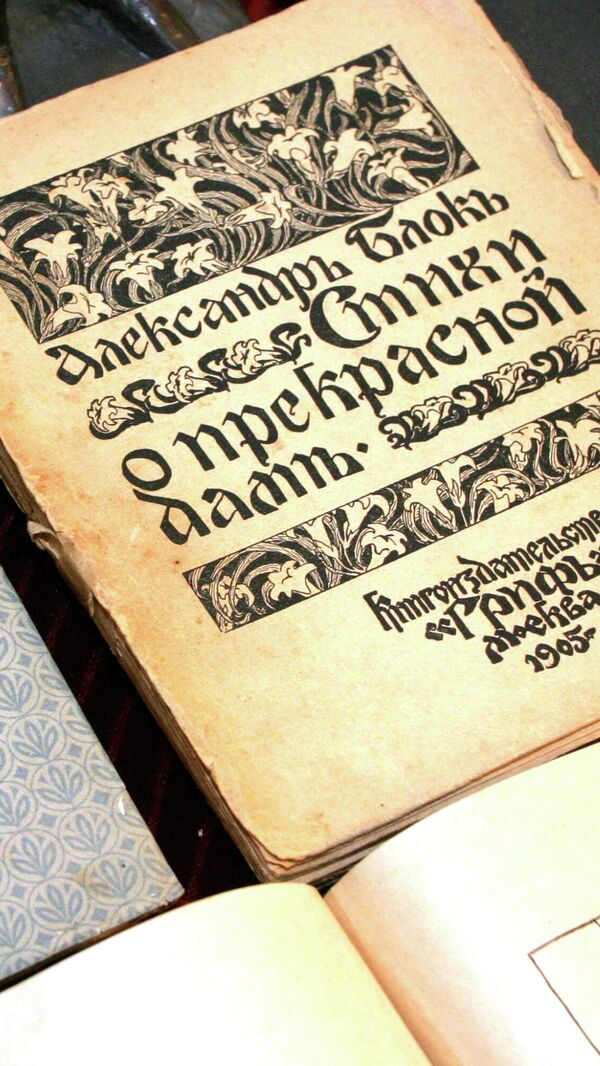 Александръ Блокъ
Стихи
о прекрасной
дамѣ.
Книгоиздательств
«Грифъ»
Москва
1905г